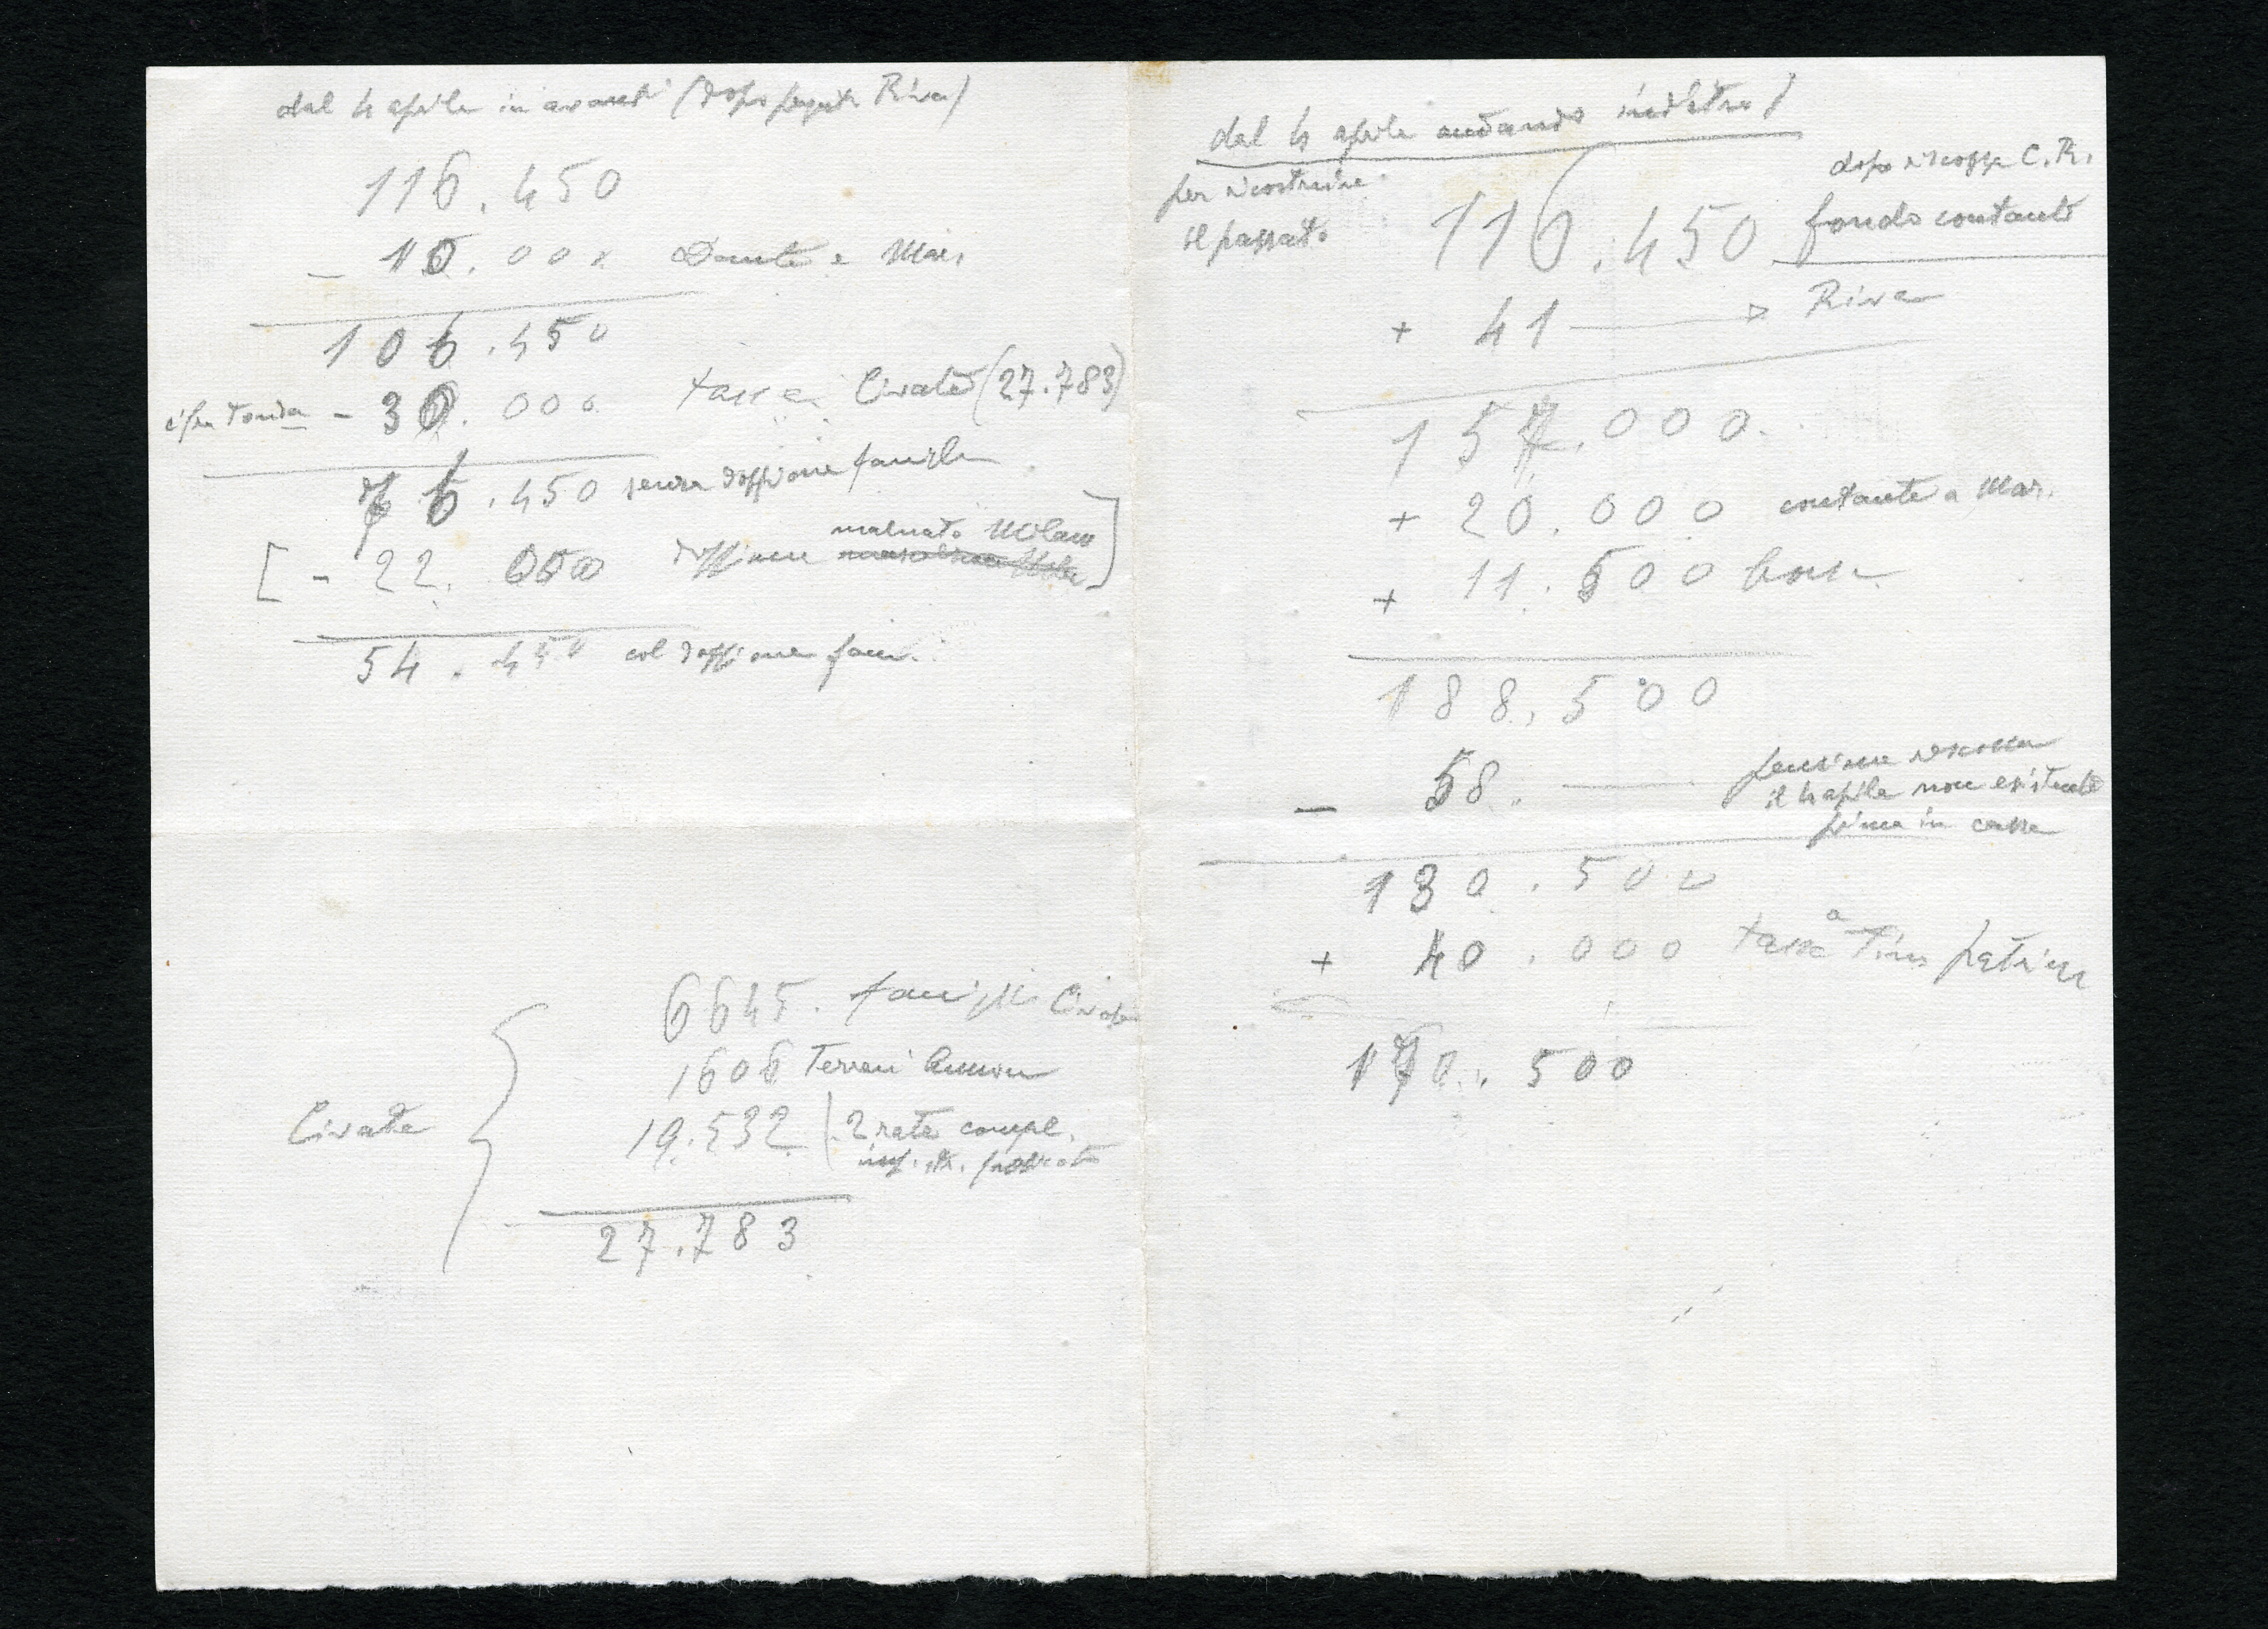 dal 4 aprile in avanti (dopo pagato Riva)
116.450
- 10.000 Dante e Mar.
106.450
cifra tonda - 30.000 tasse Civate (27.783)
76.450 senza doppione famiglia
[ - 22.000 doppione malnato Milano ]
54.450 col doppione fam.
Civate
6645. famiglia Civate
1606 Terreni Annone
19.532 (2 rate compl.
27.783
dal 4 aprile andando indietro
per ricostruire
il passato
dopo riscossa C.R.
116.450 fondo contanti
+ 41 Riva
157.000
+ 20.000 contante a Mar.
+ 11.500
188.500
- 58. pensione riscossa
il 4 aprile non esistente
prima in cassa
130.500
+ 40.000 tassa a
170.500